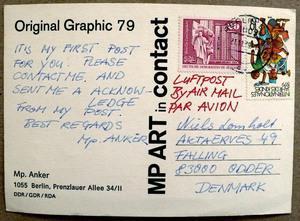 Original Graphic 79
IT IS MY FIRST POST
FOR YOU. PLEASE
CONTACT ME, AND
SENT ME A ACKNOW-
LEDGE
FROM MY POST.
BEST REGARDS
Mp. ANKER
Mp. Anker
1055 Berlin, Prenzlauer Allee 34/II
DDR/GDR/RDA
MP ART in contact
LUFTPOST
BY AIR MAIL
PAR AVION
Niels Lomholt
AKTAERVEJ 49
FALLING
83000 ODDER
DENMARK